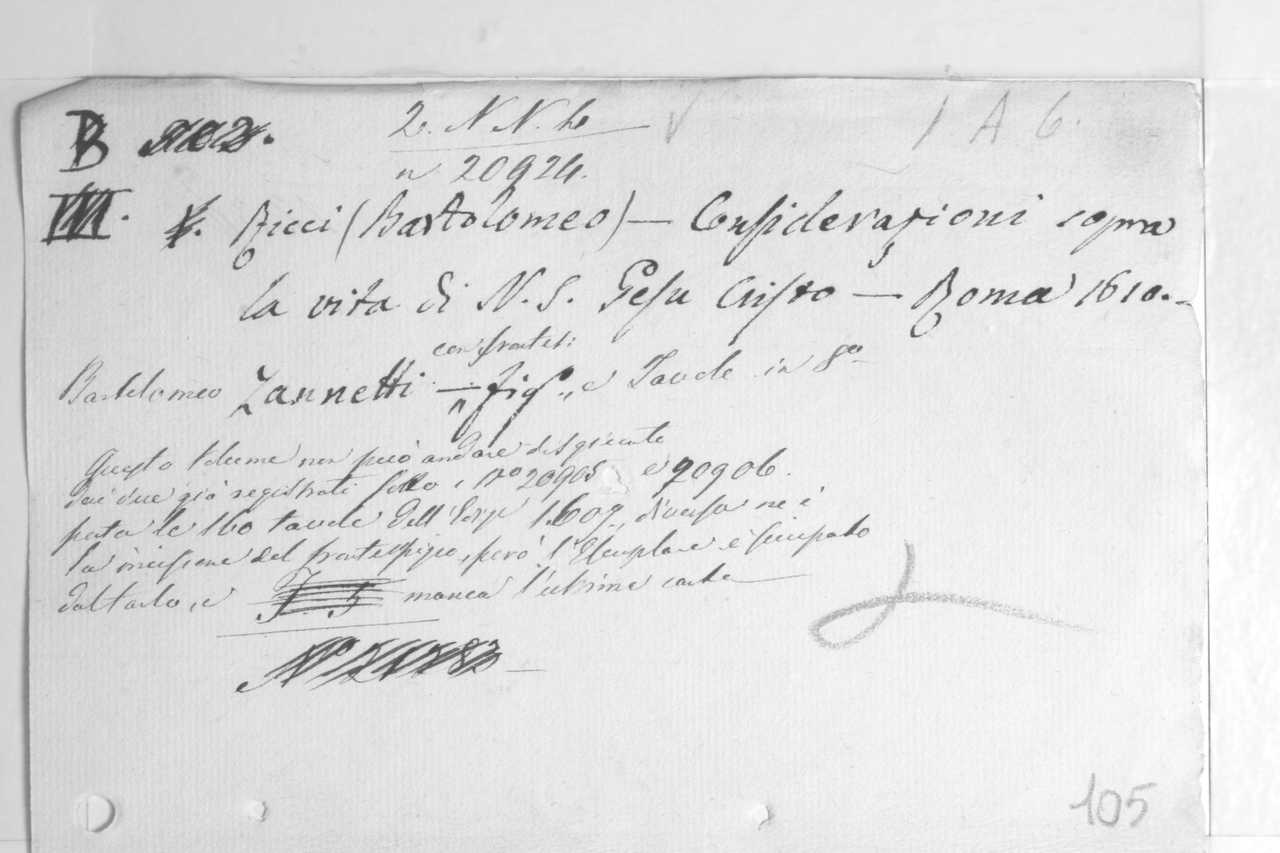 B
2. N N. 4
V
1 A 6.
n° 20924.
Ricci (Bartolomeo) — Considerazioni sopra
la vita di N. S. Gesu Cristo — Roma 1610.
con frontesi:
Bartolomeo Zannetti — fig°., e Tavole in 8°
Questo volume non può andare disgiunto
dai due già registrati sotto i N° 20905 e 20906.
porta le 160 tavole dell' Ediz° 1609., diversa ne è
la incisione del frontespizio, però l'Esemplare è sciupato
dal tarlo, e manca l'ultima carta
105